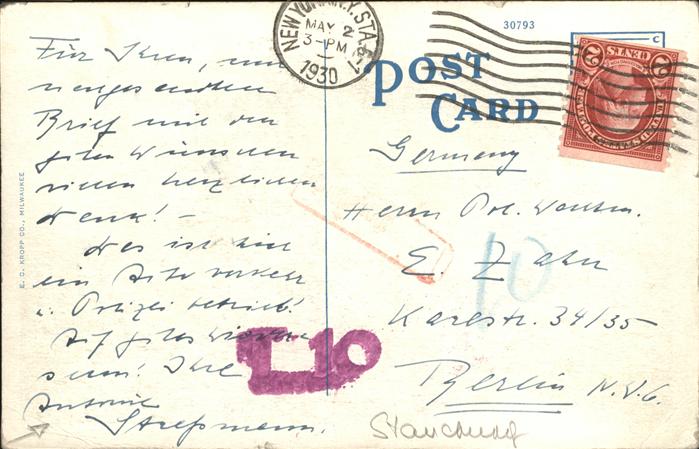 Für Ihren, mir
nachgesandten
Brief mit den
guten Wünschen
vielen herzlichen
Dank! –
Das ist hier
ein Auto verkehr
u. Polizei betrieb!
Auf gutes Wieder-
sehn! Ihre
Antonie
Straßmann.
E. C. KROPP CO., MILWAUKEE
NEW YORK, N.Y. STA.
MAY 2
3-PM
1930
30793
POST
CARD
2 CENTS 2
Germany
Herrn Pol.
E. Zahn
Karlstr. 34/35
Berlin N.W.6.
T 10
10